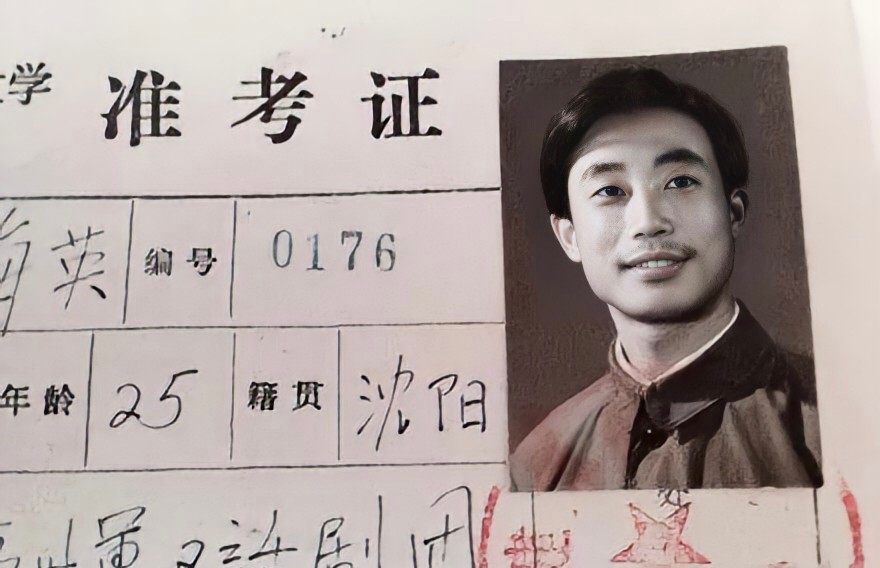 学 准考证
英 编号 0176
年龄 25 籍贯 沈阳
话剧团